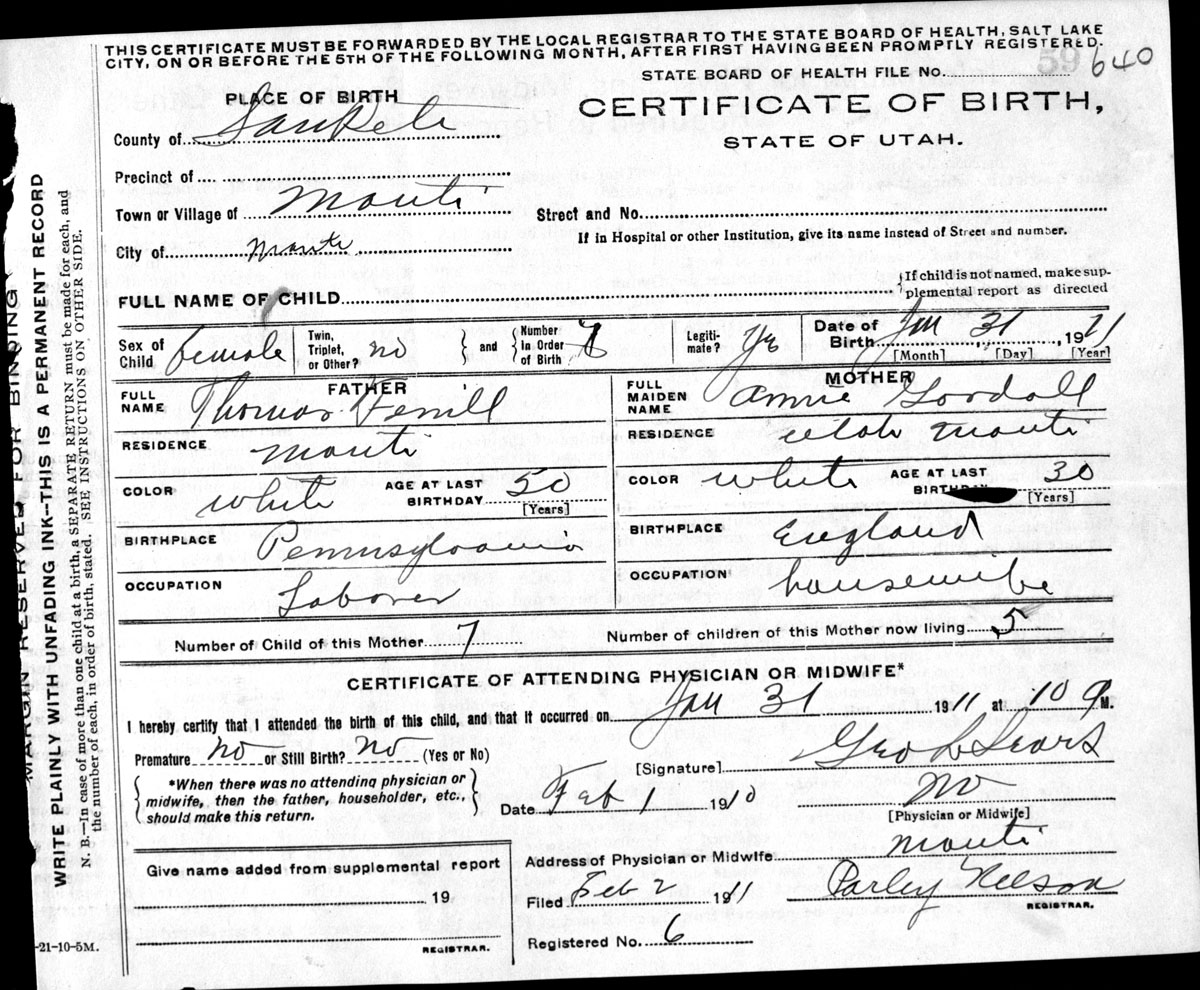 THIS CERTIFICATE MUST BE FORWARDED BY THE LOCAL REGISTRAR TO THE STATE BOARD OF HEALTH, SALT LAKE
CITY, ON OR BEFORE THE 5TH OF THE FOLLOWING MONTH, AFTER FIRST HAVING BEEN PROMPTLY REGISTERED.
STATE BOARD OF HEALTH FILE NO. 59 640
PLACE OF BIRTH
CERTIFICATE OF BIRTH,
STATE OF UTAH.
County of SanPete
Precinct of
Town or Village of Manti
Street and No.
City of Manti
If in Hospital or other Institution, give its name instead of Street and number.
FULL NAME OF CHILD
If child is not named, make supplemental report as directed
Sex of Child female
Twin, Triplet, or Other? no
and
Number in Order of Birth 7
Legitimate? Yes
Date of Birth Jan 31, 1911
[Month] [Day] [Year]
FATHER
FULL NAME Thomas Ferrill
RESIDENCE Manti
COLOR white
AGE AT LAST BIRTHDAY 50 [Years]
BIRTHPLACE Pennsylvania
OCCUPATION Laborer
MOTHER
FULL MAIDEN NAME Annie Goodall
RESIDENCE Utah Manti
COLOR white
AGE AT LAST BIRTHDAY 30 [Years]
BIRTHPLACE England
OCCUPATION housewife
Number of Child of this Mother 7
Number of children of this Mother now living 5
CERTIFICATE OF ATTENDING PHYSICIAN OR MIDWIFE*
I hereby certify that I attended the birth of this child, and that it occurred on Jan 31 1911 at 10 M.
Premature no or Still Birth? no (Yes or No)
*When there was no attending physician or
midwife, then the father, householder, etc.,
should make this return.
[Signature] Geo L Sears
Date Feb 1 1910
[Physician or Midwife]
Address of Physician or Midwife Manti
Filed Feb 2 1911
Parley Nelson
REGISTRAR.
Registered No. 6
Give name added from supplemental report
19
REGISTRAR.
-21-10-5M.
MARGIN RESERVED FOR BINDING
WRITE PLAINLY WITH UNFADING INK--THIS IS A PERMANENT RECORD
N. B.—In case of more than one child at a birth, a SEPARATE RETURN must be made for each, and
the number of each, in order of birth, stated. SEE INSTRUCTIONS ON OTHER SIDE.